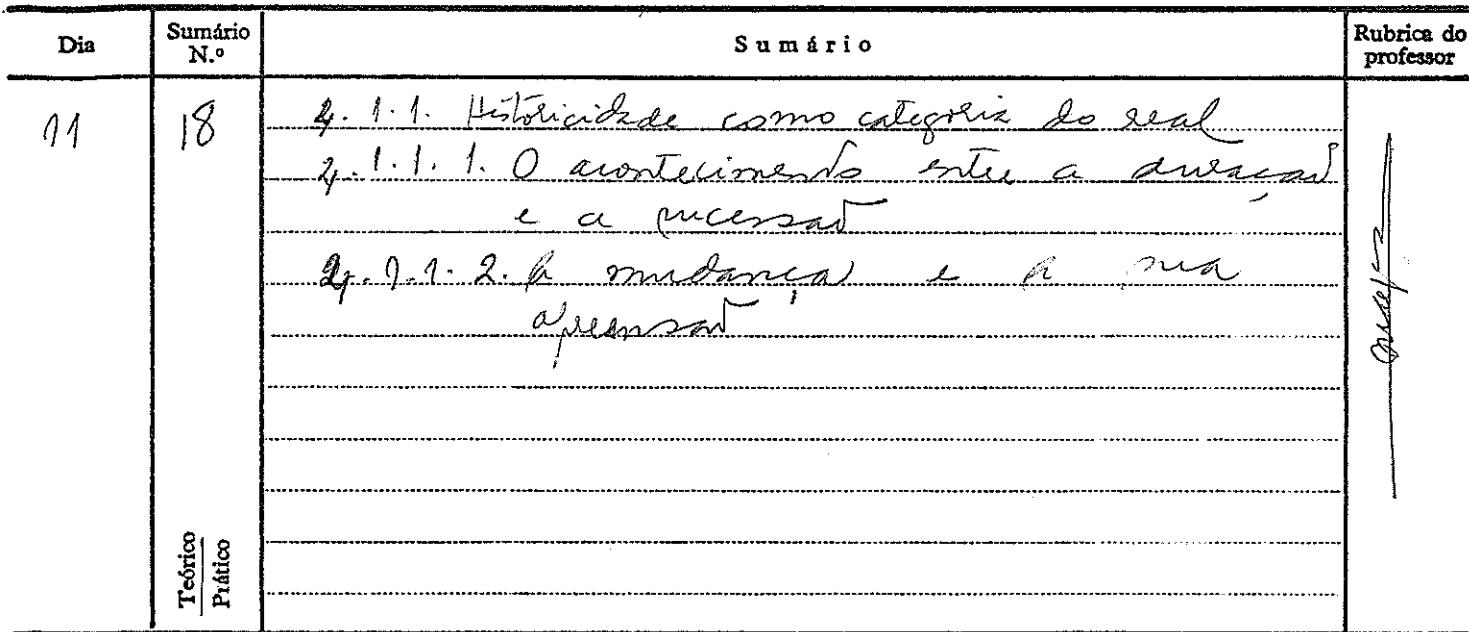 Dia
Sumário N.º
Sumário
Rubrica do professor
11
18
2.1.1. Historicidade como categoria do real
2.1.1.1. O acontecimento entre a duração
e a sucessão
2.1.1.2. A mudança e a sua
apreensão
Teórico
Prático